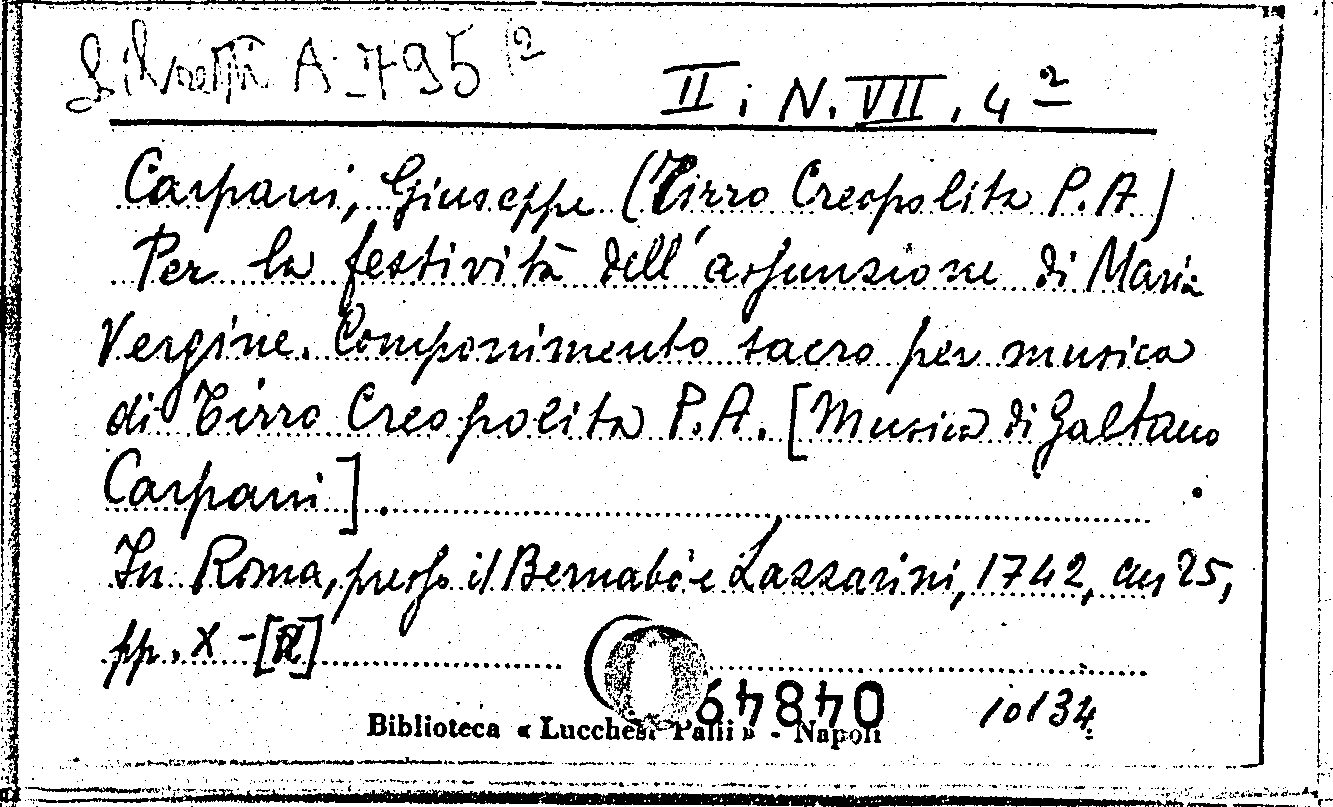 Libretti A-795 (2
II. N. VII. 4 2
Carpani, Giuseppe (Tirro Creopolita P.A)
Per la festività dell'assunzione di Maria
Vergine. Componimento sacro per musica
di Tirro Creopolita P.A. [Musica di Gaetano
Carpani].
In Roma, presso il Bernabò e Lazzarini, 1742, cm 25,
pp. X -
64840
10134
Biblioteca « Lucchesi Palli » - Napoli